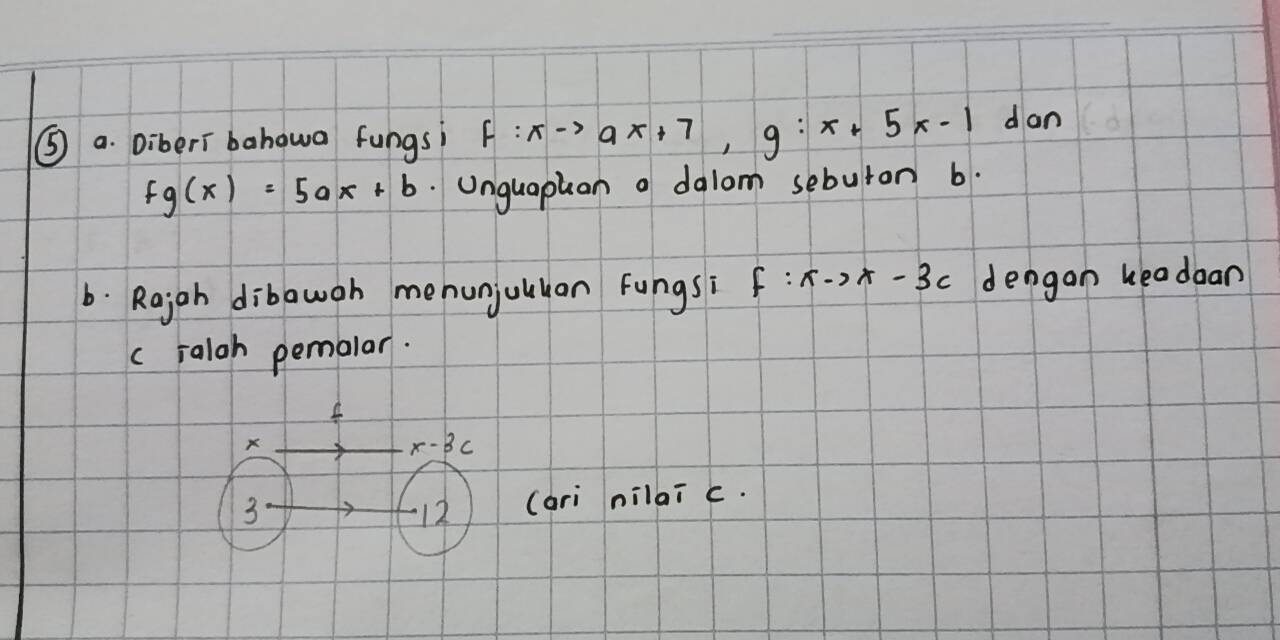 5 a. Diberi bahawa fungsi f : x -> ax + 7 , g : x + 5x - 1 dan
fg(x) = 5ax + b. Unguapkan a dalam sebutan b.
b. Rajah dibawah menunjukkan fungsi f : x -> x - 3c dengan keadaan
c ialah pemalar.
f
x → x - 3c
3 → 12 Cari nilai c.